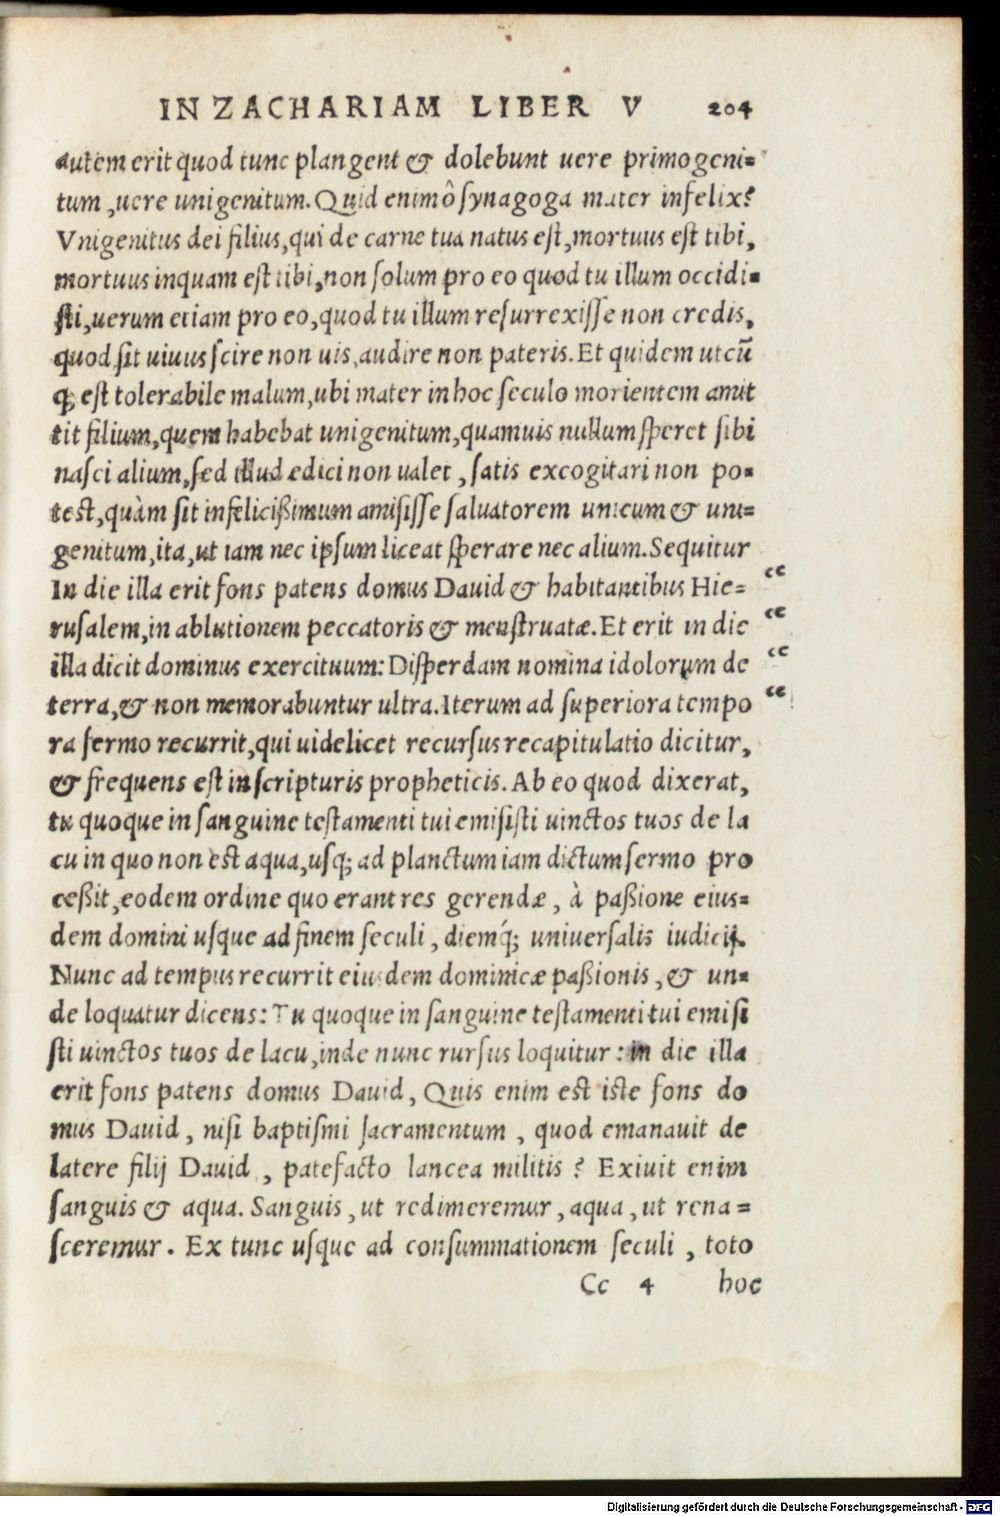 IN ZACHARIAM LIBER V 204
autem erit quod tunc plangent & dolebunt uere primogeni-
tum, uere unigenitum. Quid enim ô synagoga mater infelix?
Vnigenitus dei filius, qui de carne tua natus est, mortuus est tibi,
mortuus inquam est tibi, non solum pro eo quod tu illum occidi-
sti, uerum etiam pro eo, quod tu illum resurrexisse non credis,
quod sit uiuus scire non uis, audire non pateris. Et quidem utcũ
q; est tolerabile malum, ubi mater in hoc seculo morientem amit
tit filium, quem habebat unigenitum, quamuis nullum speret sibi
nasci alium, sed illud edici non ualet, satis excogitari non po-
test, quàm sit infelicißimum amisisse saluatorem unicum & uni-
genitum, ita, ut iam nec ipsum liceat sperare nec alium. Sequitur
In die illa erit fons patens domus Dauid & habitantibus Hie- “
rusalem, in ablutionem peccatoris & menstruatæ. Et erit in die “
illa dicit dominus exercituum: Disperdam nomina idolorum de “
terra, & non memorabuntur ultra. Iterum ad superiora tempo “
ra sermo recurrit, qui uidelicet recursus recapitulatio dicitur,
& frequens est in scripturis propheticis. Ab eo quod dixerat,
tu quoque in sanguine testamenti tui emisisti uinctos tuos de la
cu in quo non est aqua, usq; ad planctum iam dictum sermo pro
ceßit, eodem ordine quo erant res gerendæ, à paßione eius-
dem domini usque ad finem seculi, diemq́; uniuersalis iudicij.
Nunc ad tempus recurrit eiusdem dominicæ paßionis, & un-
de loquatur dicens: Tu quoque in sanguine testamenti tui emisi
sti uinctos tuos de lacu, inde nunc rursus loquitur: in die illa
erit fons patens domus Dauid, Quis enim est iste fons do
mus Dauid, nisi baptismi sacramentum, quod emanauit de
latere filij Dauid, patefacto lancea militis? Exiuit enim
sanguis & aqua. Sanguis, ut redimeremur, aqua, ut rena-
sceremur. Ex tunc usque ad consummationem seculi, toto
Cc 4 hoc
Digitalisierung gefördert durch die Deutsche Forschungsgemeinschaft - DFG